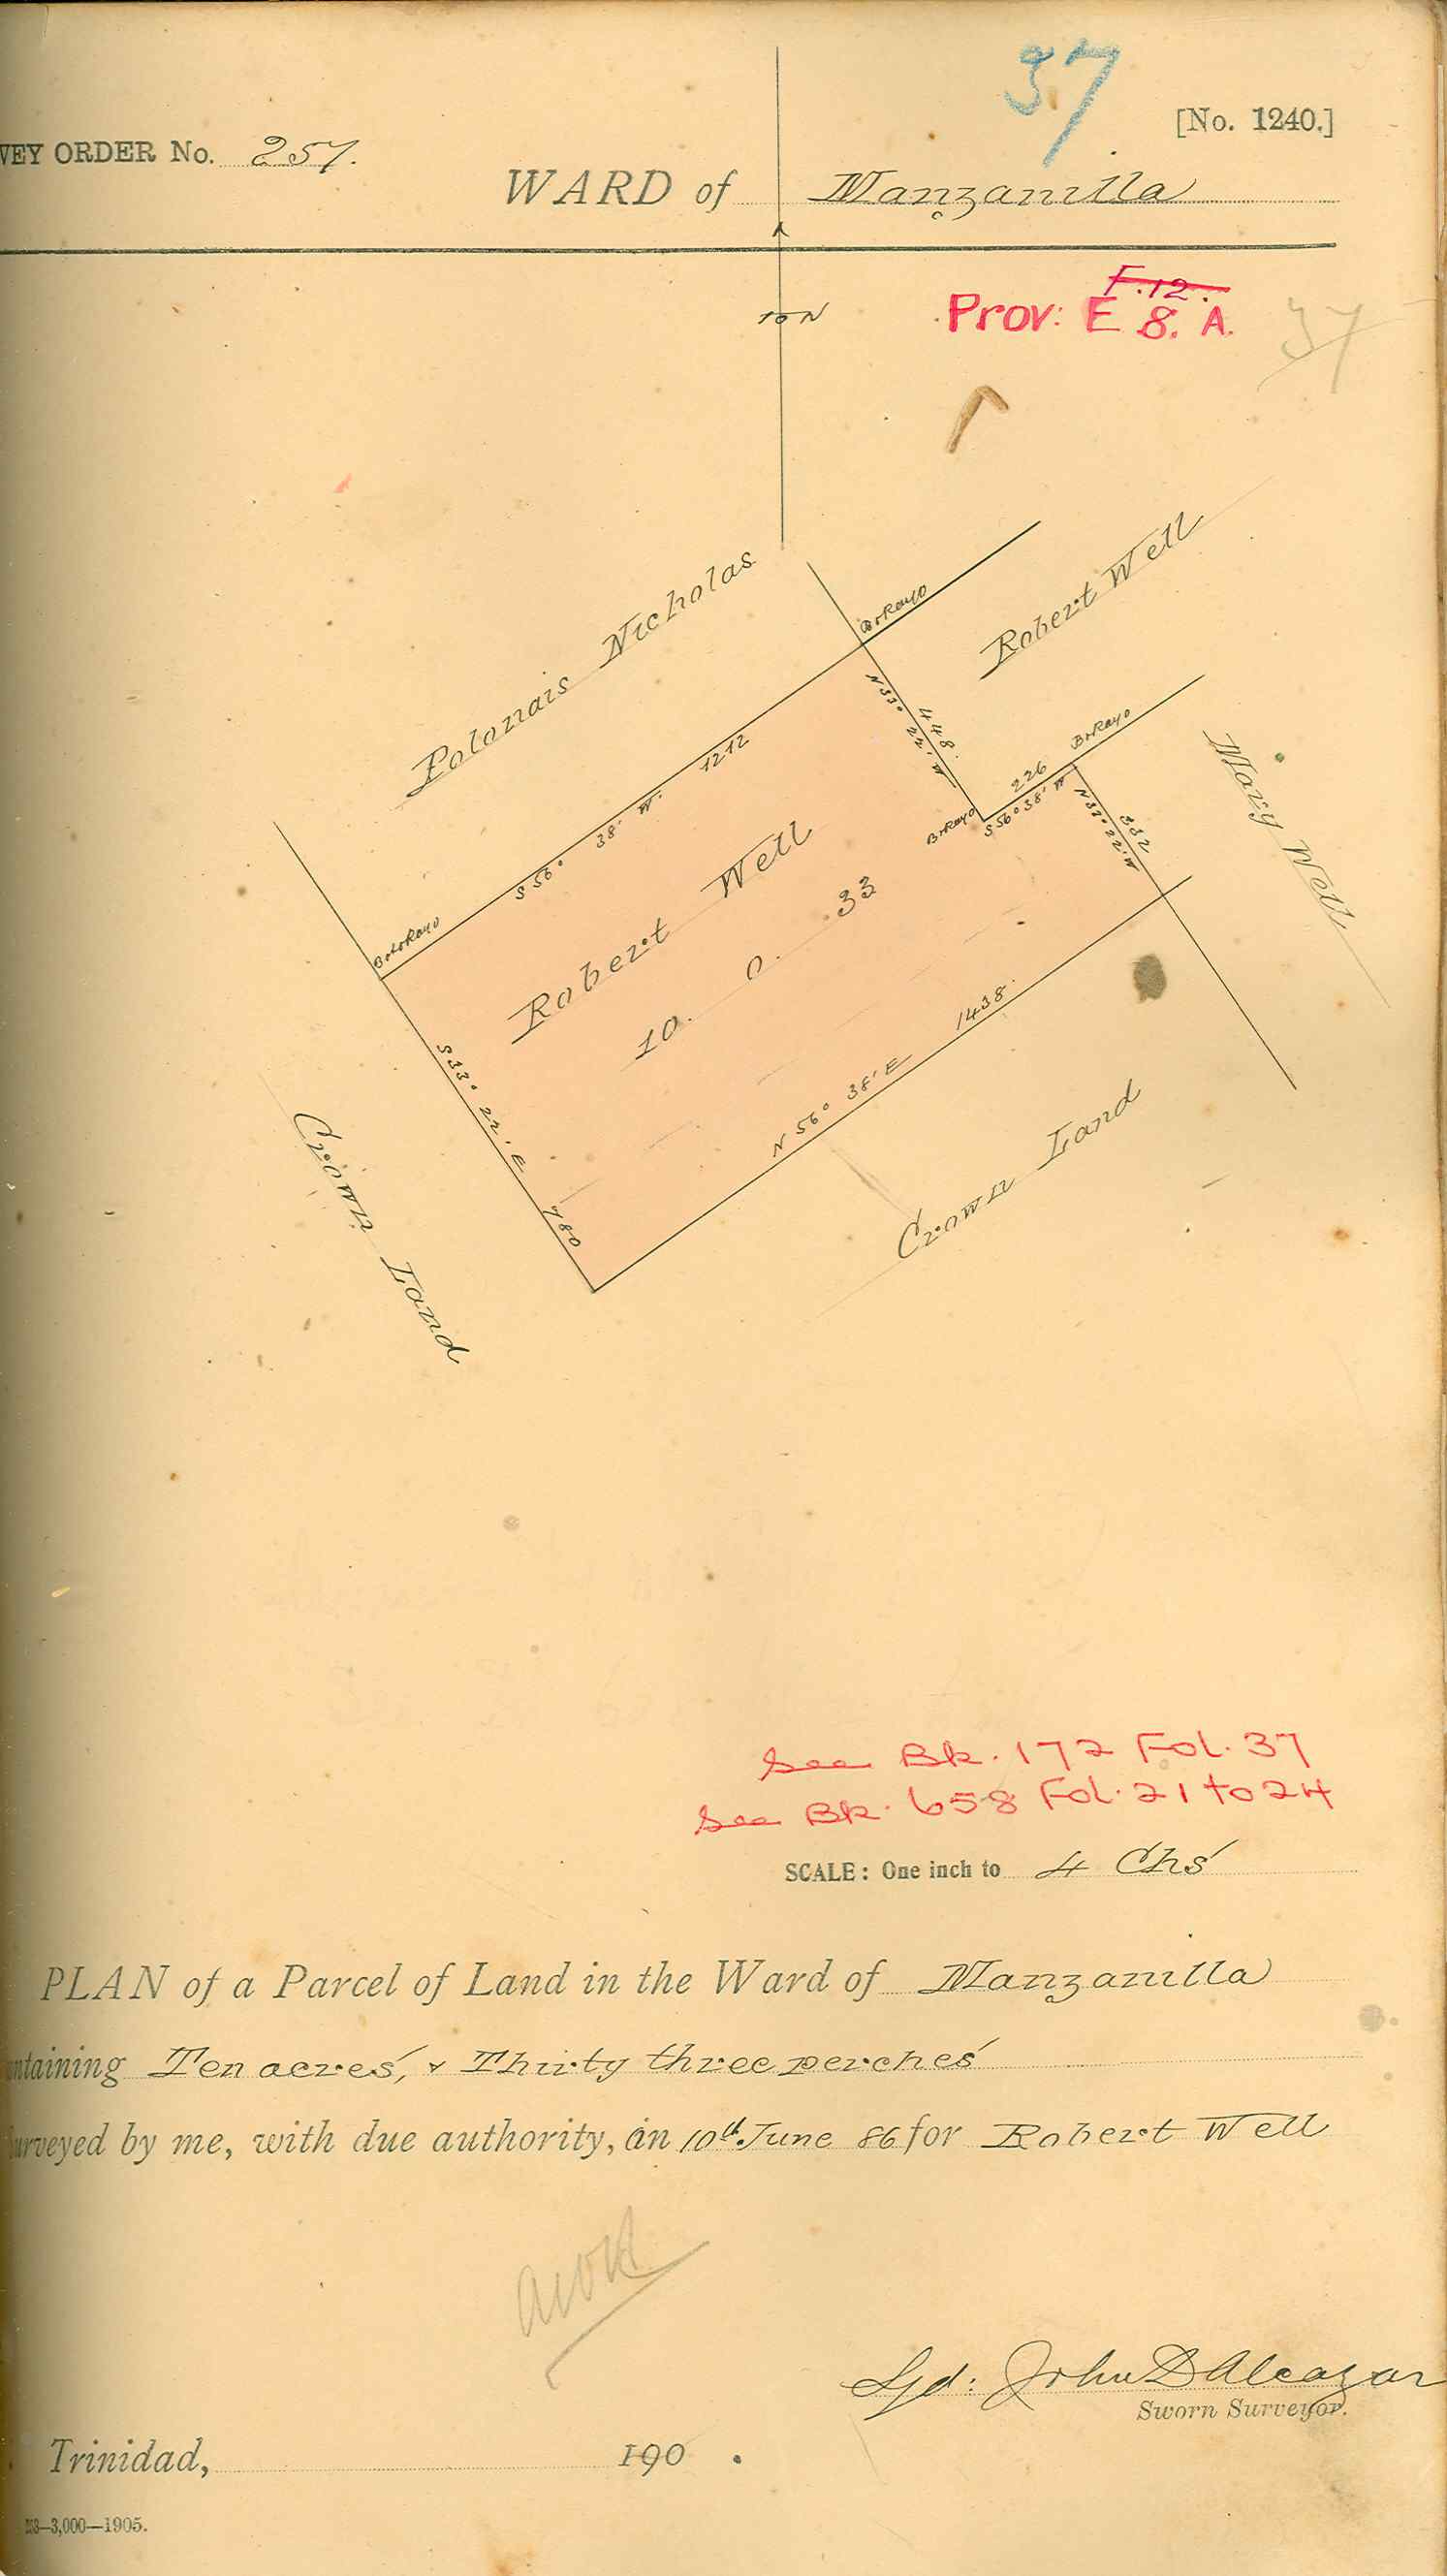 37
[No. 1240.]
VEY ORDER No. 257.
WARD of Manzanilla
F.12.
Prov: E 8. A.
37
Polonais Nicholas
Robert Well
Mary Well
N 33° 22' W
448.
226
S 56° 38' W
332
N 33° 22' W
S 56° 38' W. 1212
Robert Well
10. 0. 33
S 33° 22' E 780
N 56° 38' E 1438.
Crown Land
Crown Land
See Bk. 172 Fol. 37
See Bk. 658 Fol. 21 to 24
SCALE: One inch to 4 Chs
PLAN of a Parcel of Land in the Ward of Manzanilla
ntaining Ten acres, & Thirty three perches
urveyed by me, with due authority, on 10th June 86 for Robert Well
Sgd: John D Alcazar
Sworn Surveyor.
Trinidad, 190 .
3,000—1905.